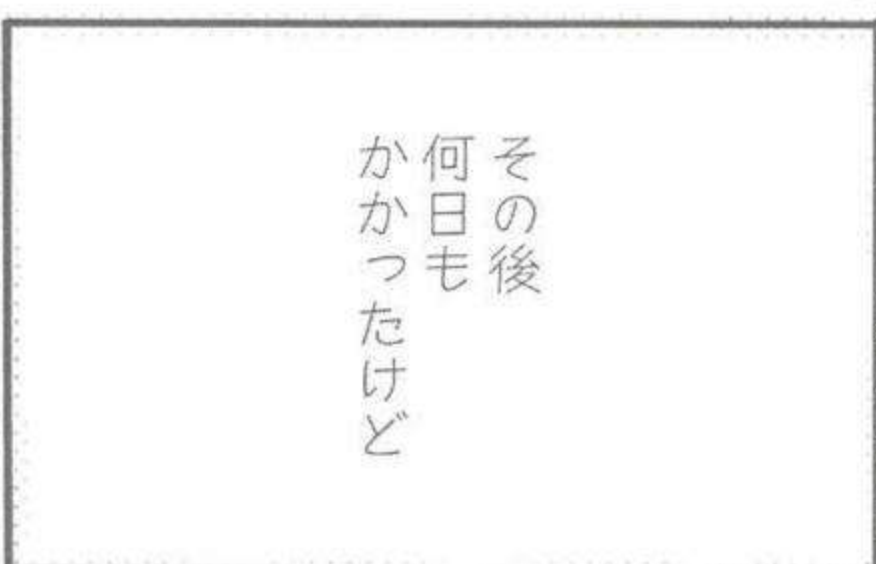 その後
何日も
かかったけど